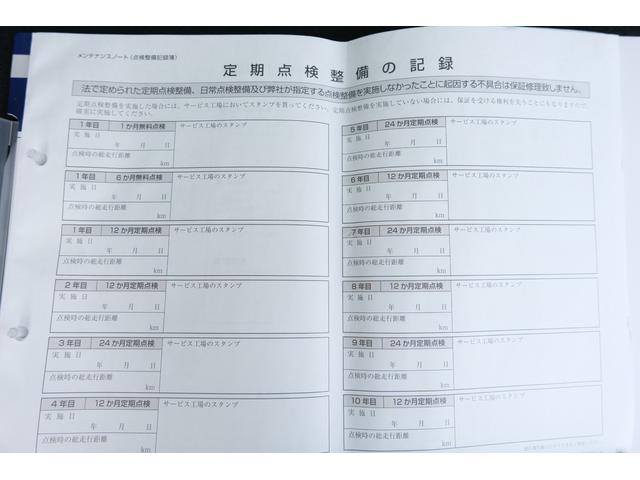 メンテナンスノート（点検整備記録簿）
定期点検整備の記録
法で定められた定期点検整備、日常点検整備及び弊社が指定する点検整備を実施しなかったことに起因する不具合は保証修理致しません。
定期点検整備を実施した場合には、サービス工場においてスタンプを貰ってください。定期点検整備を実施していない場合には、保証を受ける権利を失うことにもなりますので、
確実に実施してください。
1年目 1か月無料点検 サービス工場のスタンプ
実施日
年 月 日
点検時の総走行距離
km
1年目 6か月無料点検 サービス工場のスタンプ
実施日
年 月 日
点検時の総走行距離
km
1年目 12か月定期点検 サービス工場のスタンプ
実施日
年 月 日
点検時の総走行距離
km
2年目 12か月定期点検 サービス工場のスタンプ
実施日
年 月 日
点検時の総走行距離
km
3年目 24か月定期点検 サービス工場のスタンプ
実施日
年 月 日
点検時の総走行距離
km
4年目 12か月定期点検 サービス工場のスタンプ
実施日
年 月 日
点検時の総走行距離
km
5年目 24か月定期点検 サービス工場のスタンプ
実施日
年 月 日
点検時の総走行距離
km
6年目 12か月定期点検 サービス工場のスタンプ
実施日
年 月 日
点検時の総走行距離
km
7年目 24か月定期点検 サービス工場のスタンプ
実施日
年 月 日
点検時の総走行距離
km
8年目 12か月定期点検 サービス工場のスタンプ
実施日
年 月 日
点検時の総走行距離
km
9年目 24か月定期点検 サービス工場のスタンプ
実施日
年 月 日
点検時の総走行距離
km
10年目 12か月定期点検 サービス工場のスタンプ
実施日
年 月 日
点検時の総走行距離
km